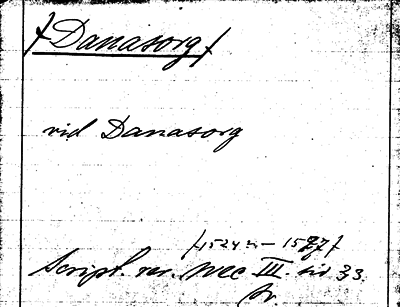 /Danasorg/
vid Danasorg
/1524 – 1527/
Script. rer. svec III. sid 33.